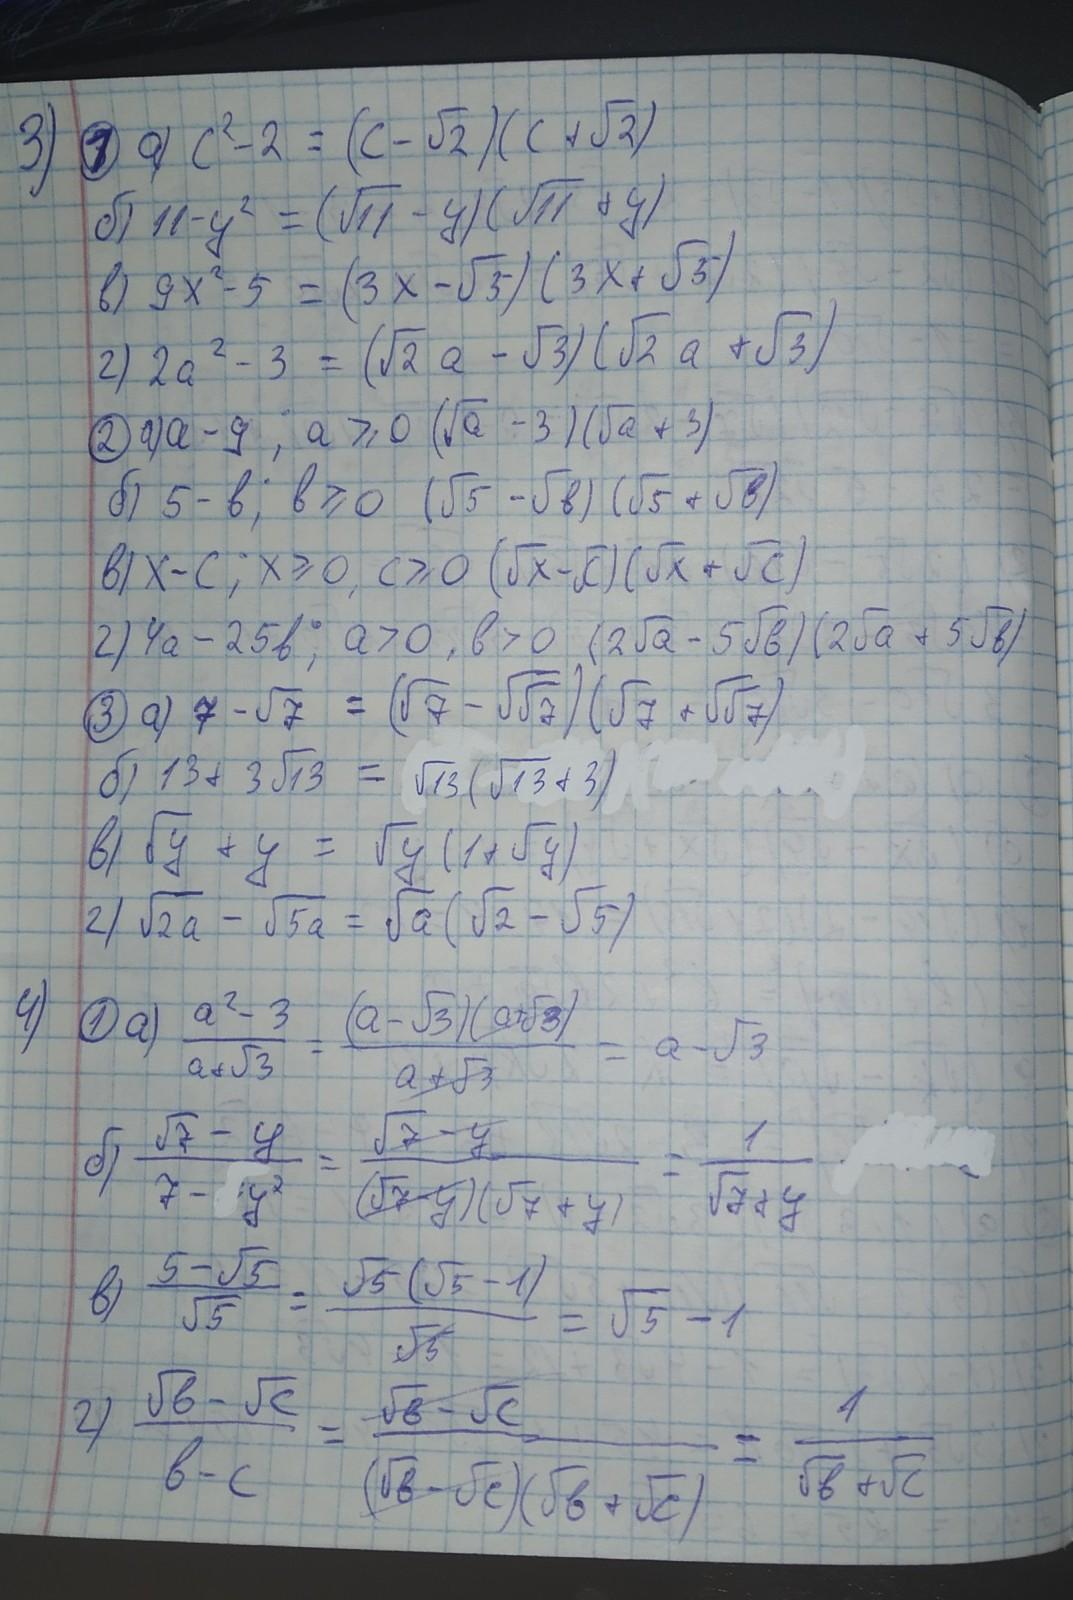 3) ① а) c² - 2 = (c - √2)(c + √2)
б) 11 - y² = (√11 - y)(√11 + y)
в) 9x² - 5 = (3x - √5)(3x + √5)
г) 2a² - 3 = (√2 a - √3)(√2 a + √3)
② а) a - 9; a ⩾ 0 (√a - 3)(√a + 3)
б) 5 - b; b ⩾ 0 (√5 - √b)(√5 + √b)
в) x - c; x ⩾ 0, c ⩾ 0 (√x - √c)(√x + √c)
г) 4a - 25b; a > 0, b > 0 (2√a - 5√b)(2√a + 5√b)
③ а) 7 - √7 = (√7 - √√7)(√7 + √√7)
б) 13 + 3√13 = √13(√13 + 3)
в) √y + y = √y(1 + √y)
г) √2a - √5a = √a(√2 - √5)
4) ① а) (a² - 3)/(a + √3) = ((a - √3)(a + √3))/(a + √3) = a - √3
б) (√7 - y)/(7 - y²) = (√7 - y)/((√7 - y)(√7 + y)) = 1/(√7 + y)
в) (5 - √5)/√5 = (√5(√5 - 1))/√5 = √5 - 1
г) (√b - √c)/(b - c) = (√b - √c)/((√b - √c)(√b + √c)) = 1/(√b + √c)